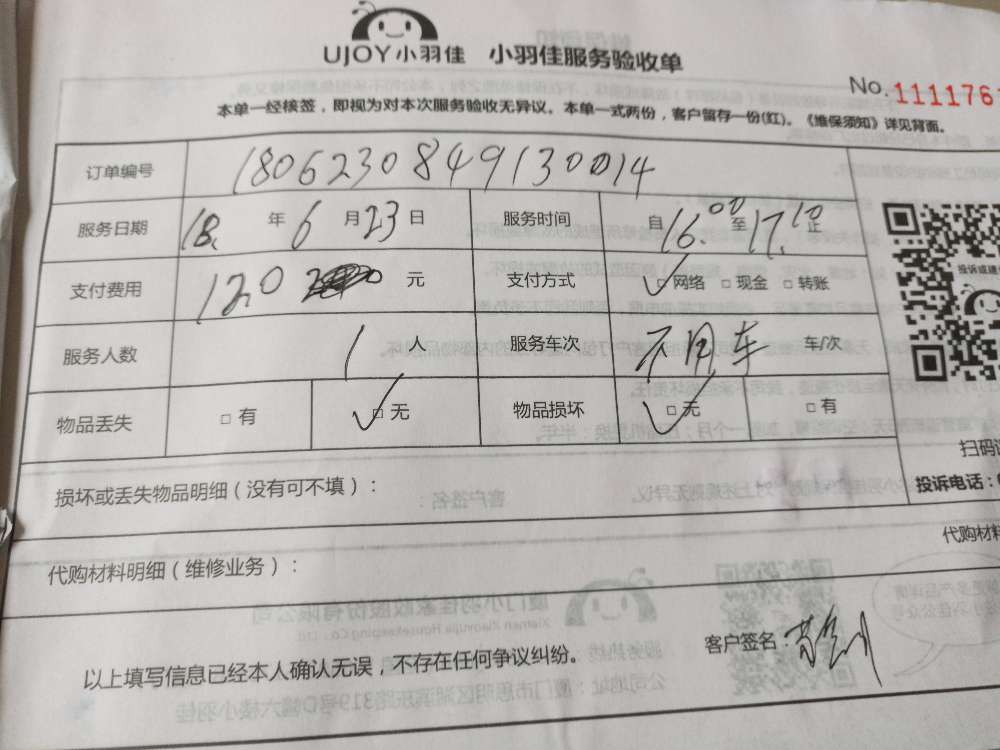 UJOY小羽佳 小羽佳服务验收单
No.111176
本单一经核签，即视为对本次服务验收无异议。本单一式两份，客户留存一份(红)。《维保须知》详见背面。
订单编号 1806230849130014
服务日期 18. 年 6 月 23 日 服务时间 自 16.00 至 17.10 止
支付费用 120 元 支付方式 ✓□网络 □现金 □转账
投诉或建
服务人数 1 人 服务车次 不用车 车/次
物品丢失 □有 ✓□无 物品损坏 ✓□无 □有
扫码
损坏或丢失物品明细（没有可不填）：
投诉电话：
代购材料明细（维修业务）：
代购材料
以上填写信息已经本人确认无误，不存在任何争议纠纷。 客户签名：